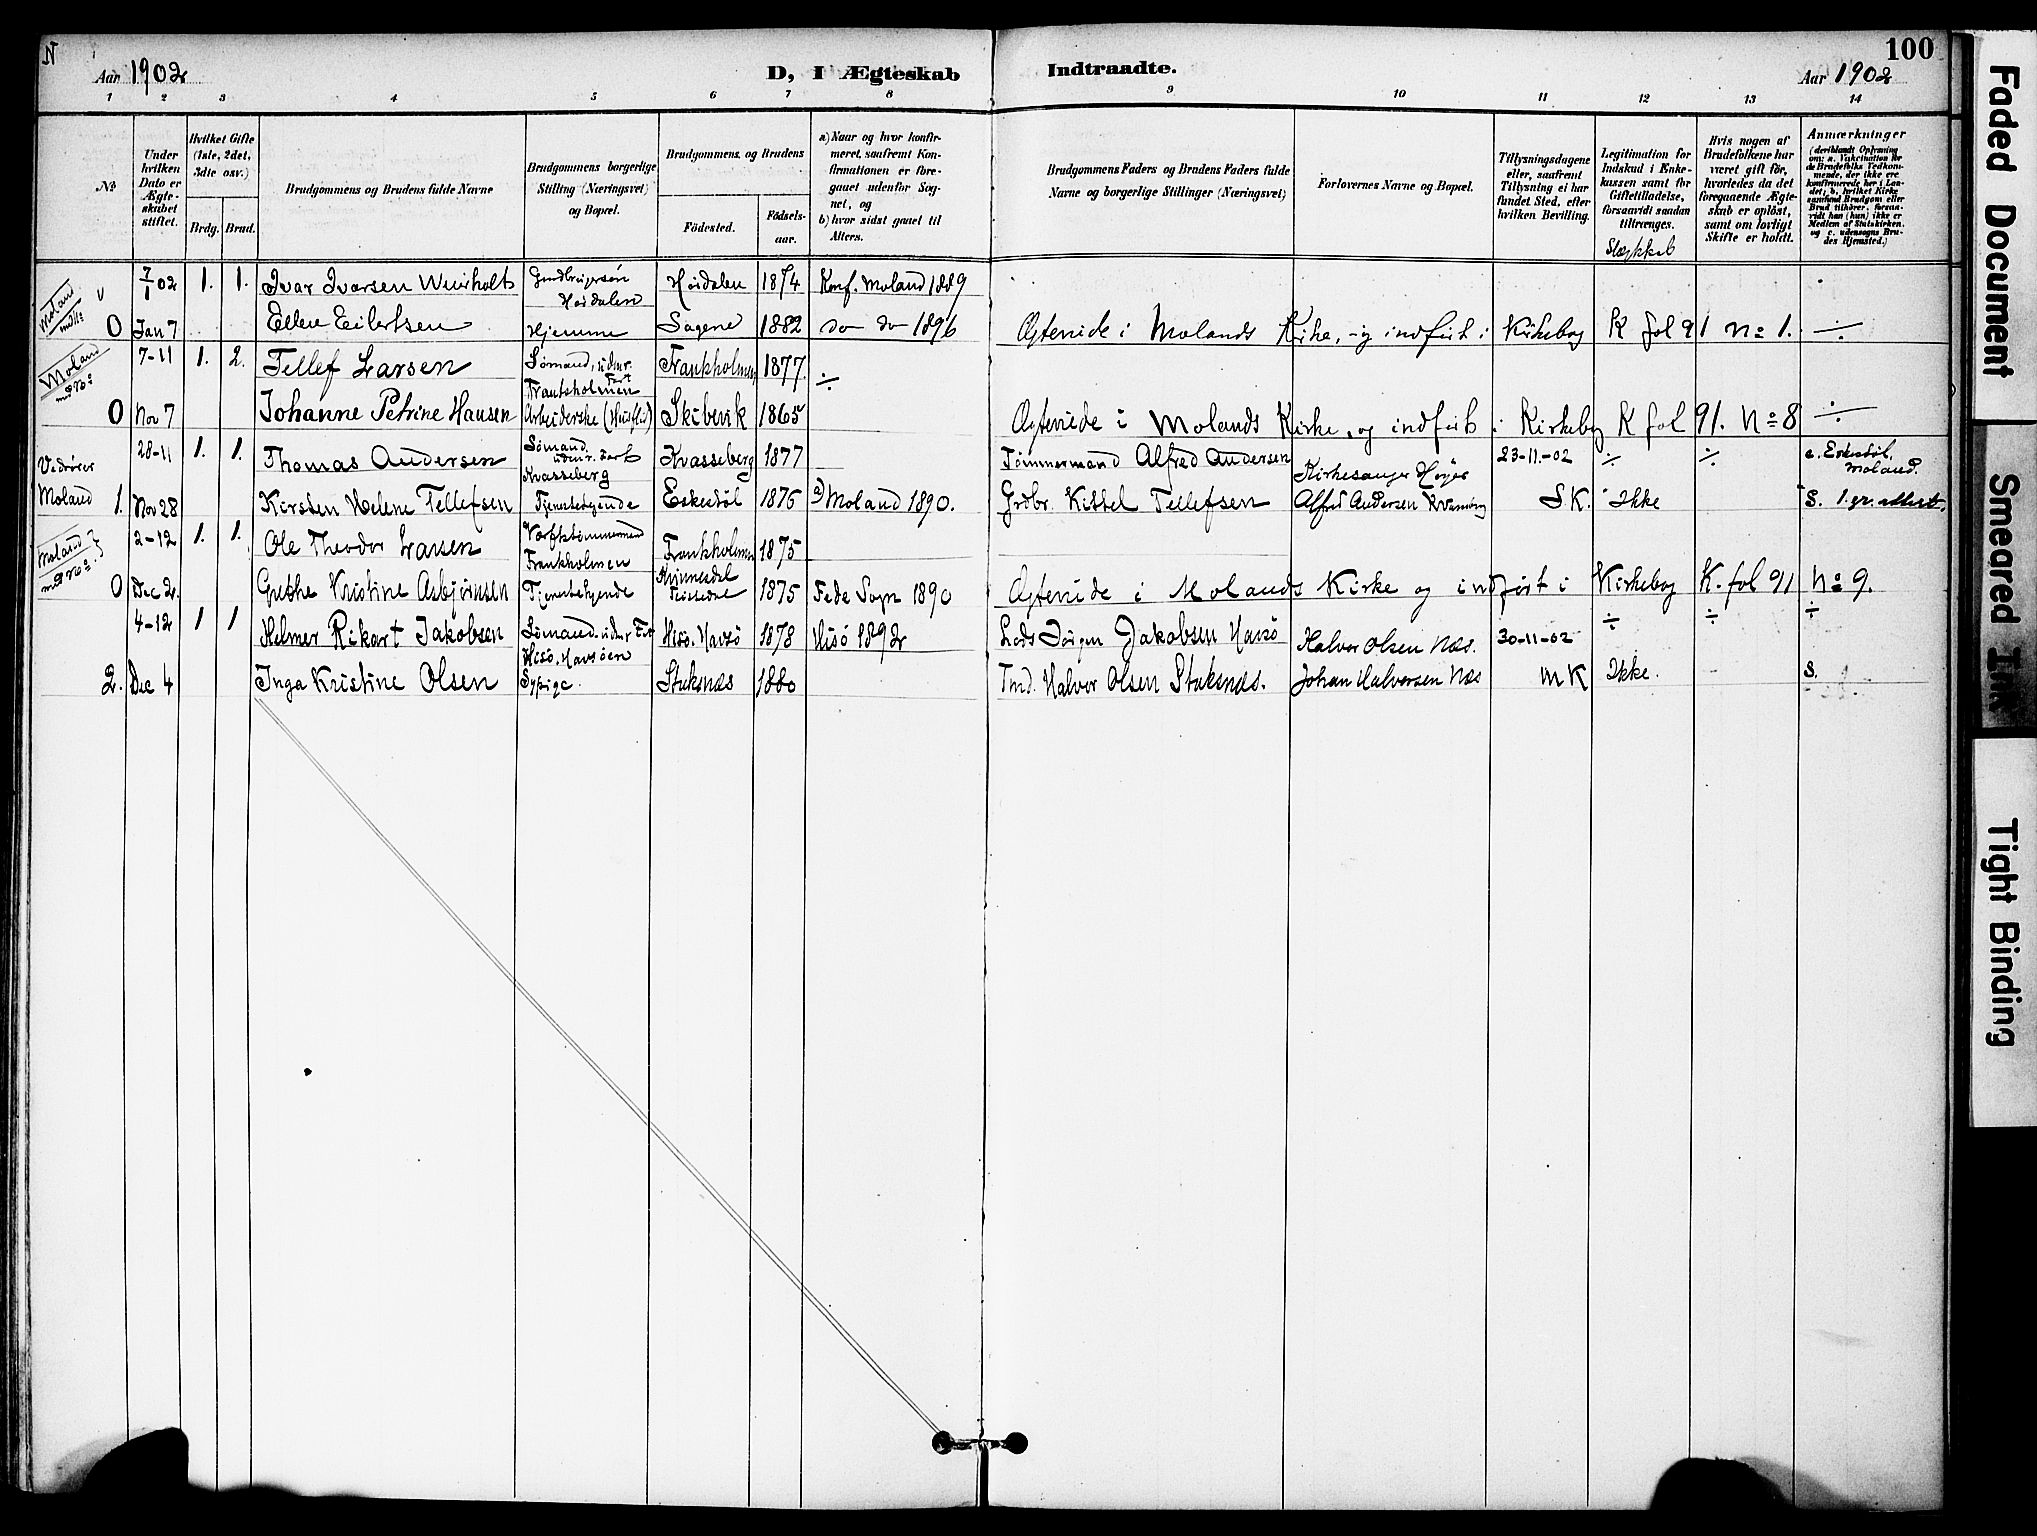 N
Aar 1902
D, I Ægteskab Indtraadte.
100
Aar 1902
1 2 3 4 5 6 7 8 9 10 11 12 13 14
No
Under hvilken Dato er Ægteskabet stiftet.
Hvilket Gifte (1ste, 2det, 3die osv.)
Brdg. Brud.
Brudgommens og Brudens fulde Navne
Brudgommens borgerlige Stilling (Næringsvei) og Bopæl.
Brudgommens og Brudens
Fødested.
Fødselsaar.
a) Naar og hvor konfirmeret, saafremt Konfirmationen er foregaaet udenfor Sognet, og
b) hvor sidst gaaet til Alters.
Brudgommens Faders og Brudens Faders fulde Navne og borgerlige Stillinger (Næringsvei)
Forlovernes Navne og Bopæl.
Tillysningsdagene eller, saafremt Tillysning ei har fundet Sted, efter hvilken Bevilling.
Legitimation for Indskud i Enkekassen samt for Giftetilladelse, forsaavidt saadan tiltrænges.
Slægtskab
Hvis nogen af Brudefolkene har været gift før, hvorledes da det foregaaende Ægteskab er opløst, samt om lovligt Skifte er holdt.
Anmærkninger
(deriblandt Oplysning om: a. Vakcination for de Brudefolks Vedkommende, der ikke ere konfirmerede her i Landet; b. hvilket Kirkesamfund Brudgom eller Brud tilhører, forsaavidt han (hun) ikke er Medlem af Statskirken, og c. udensogns Brudes Hjemsted.)
Moland 7/1 02 1. 1. Ivar Ivarsen Hoidalen Hoidalen 1874 Konf. Moland 1889
0 Jan 7 Ellen Eilertsen Hjemme Sagene 1882 do do 1896 Ægtevide i Molands Kirke, og indført i Kirkebog K fol 91 No 1. ÷
Moland 7-11 1. 2. Tellef Larsen Sømand, udenr. Fart Frankholmen Frankholmen 1877 ÷
0 Nov 7 Johanne Petrine Hansen Arbeiderske (Husflid) Skibevik 1865 Ægtevide i Molands Kirke, og indført i Kirkebog K fol 91. No 8 ÷
Vedrører 28-11 1. 1. Thomas Andersen Sømand udenr. Fart Kvasseberg Kvasseberg 1877 Tømmermand Alfred Andersen Kirkesanger 23-11-02 ÷ ÷ c. Eskedøl, Moland.
Moland 1. Nov 28 Kirsten Helene Tellefsen Tjenestepige Eskedøl 1875 a) Moland 1890. Grdbr. Kittel Tellefsen Alfred Andersen S K. Ikke S. 1 gr. attest.
Moland 2-12 1. 1. Ole Theodor Larsen Værftstømmermand Frankholmen Frankholmen 1875
0 Dec 2. Grethe Kristine Asbjörnsen Tjenestepige 1875 Fede Sogn 1890 Ægtevide i Molands Kirke og indført i Kirkebog K. fol 91 No 9.
4-12 1 1 Helmer Rikart Jakobsen Sømand udenr Fart Hisö. Havsöen Hisö. Havsö 1878 Hisö 1892 Lods Jörgen Jakobsen Havsö Halvor Olsen Næs. 30-11-02 ÷ ÷ ÷
2. Dec 4 Inga Kristine Olsen Sypige. Stuksnæs 1880 Tmd. Halvor Olsen Stuksnæs. Johan Halvorsen Næs M K Ikke. S.
Faded Document
Smeared Ink
Tight Binding